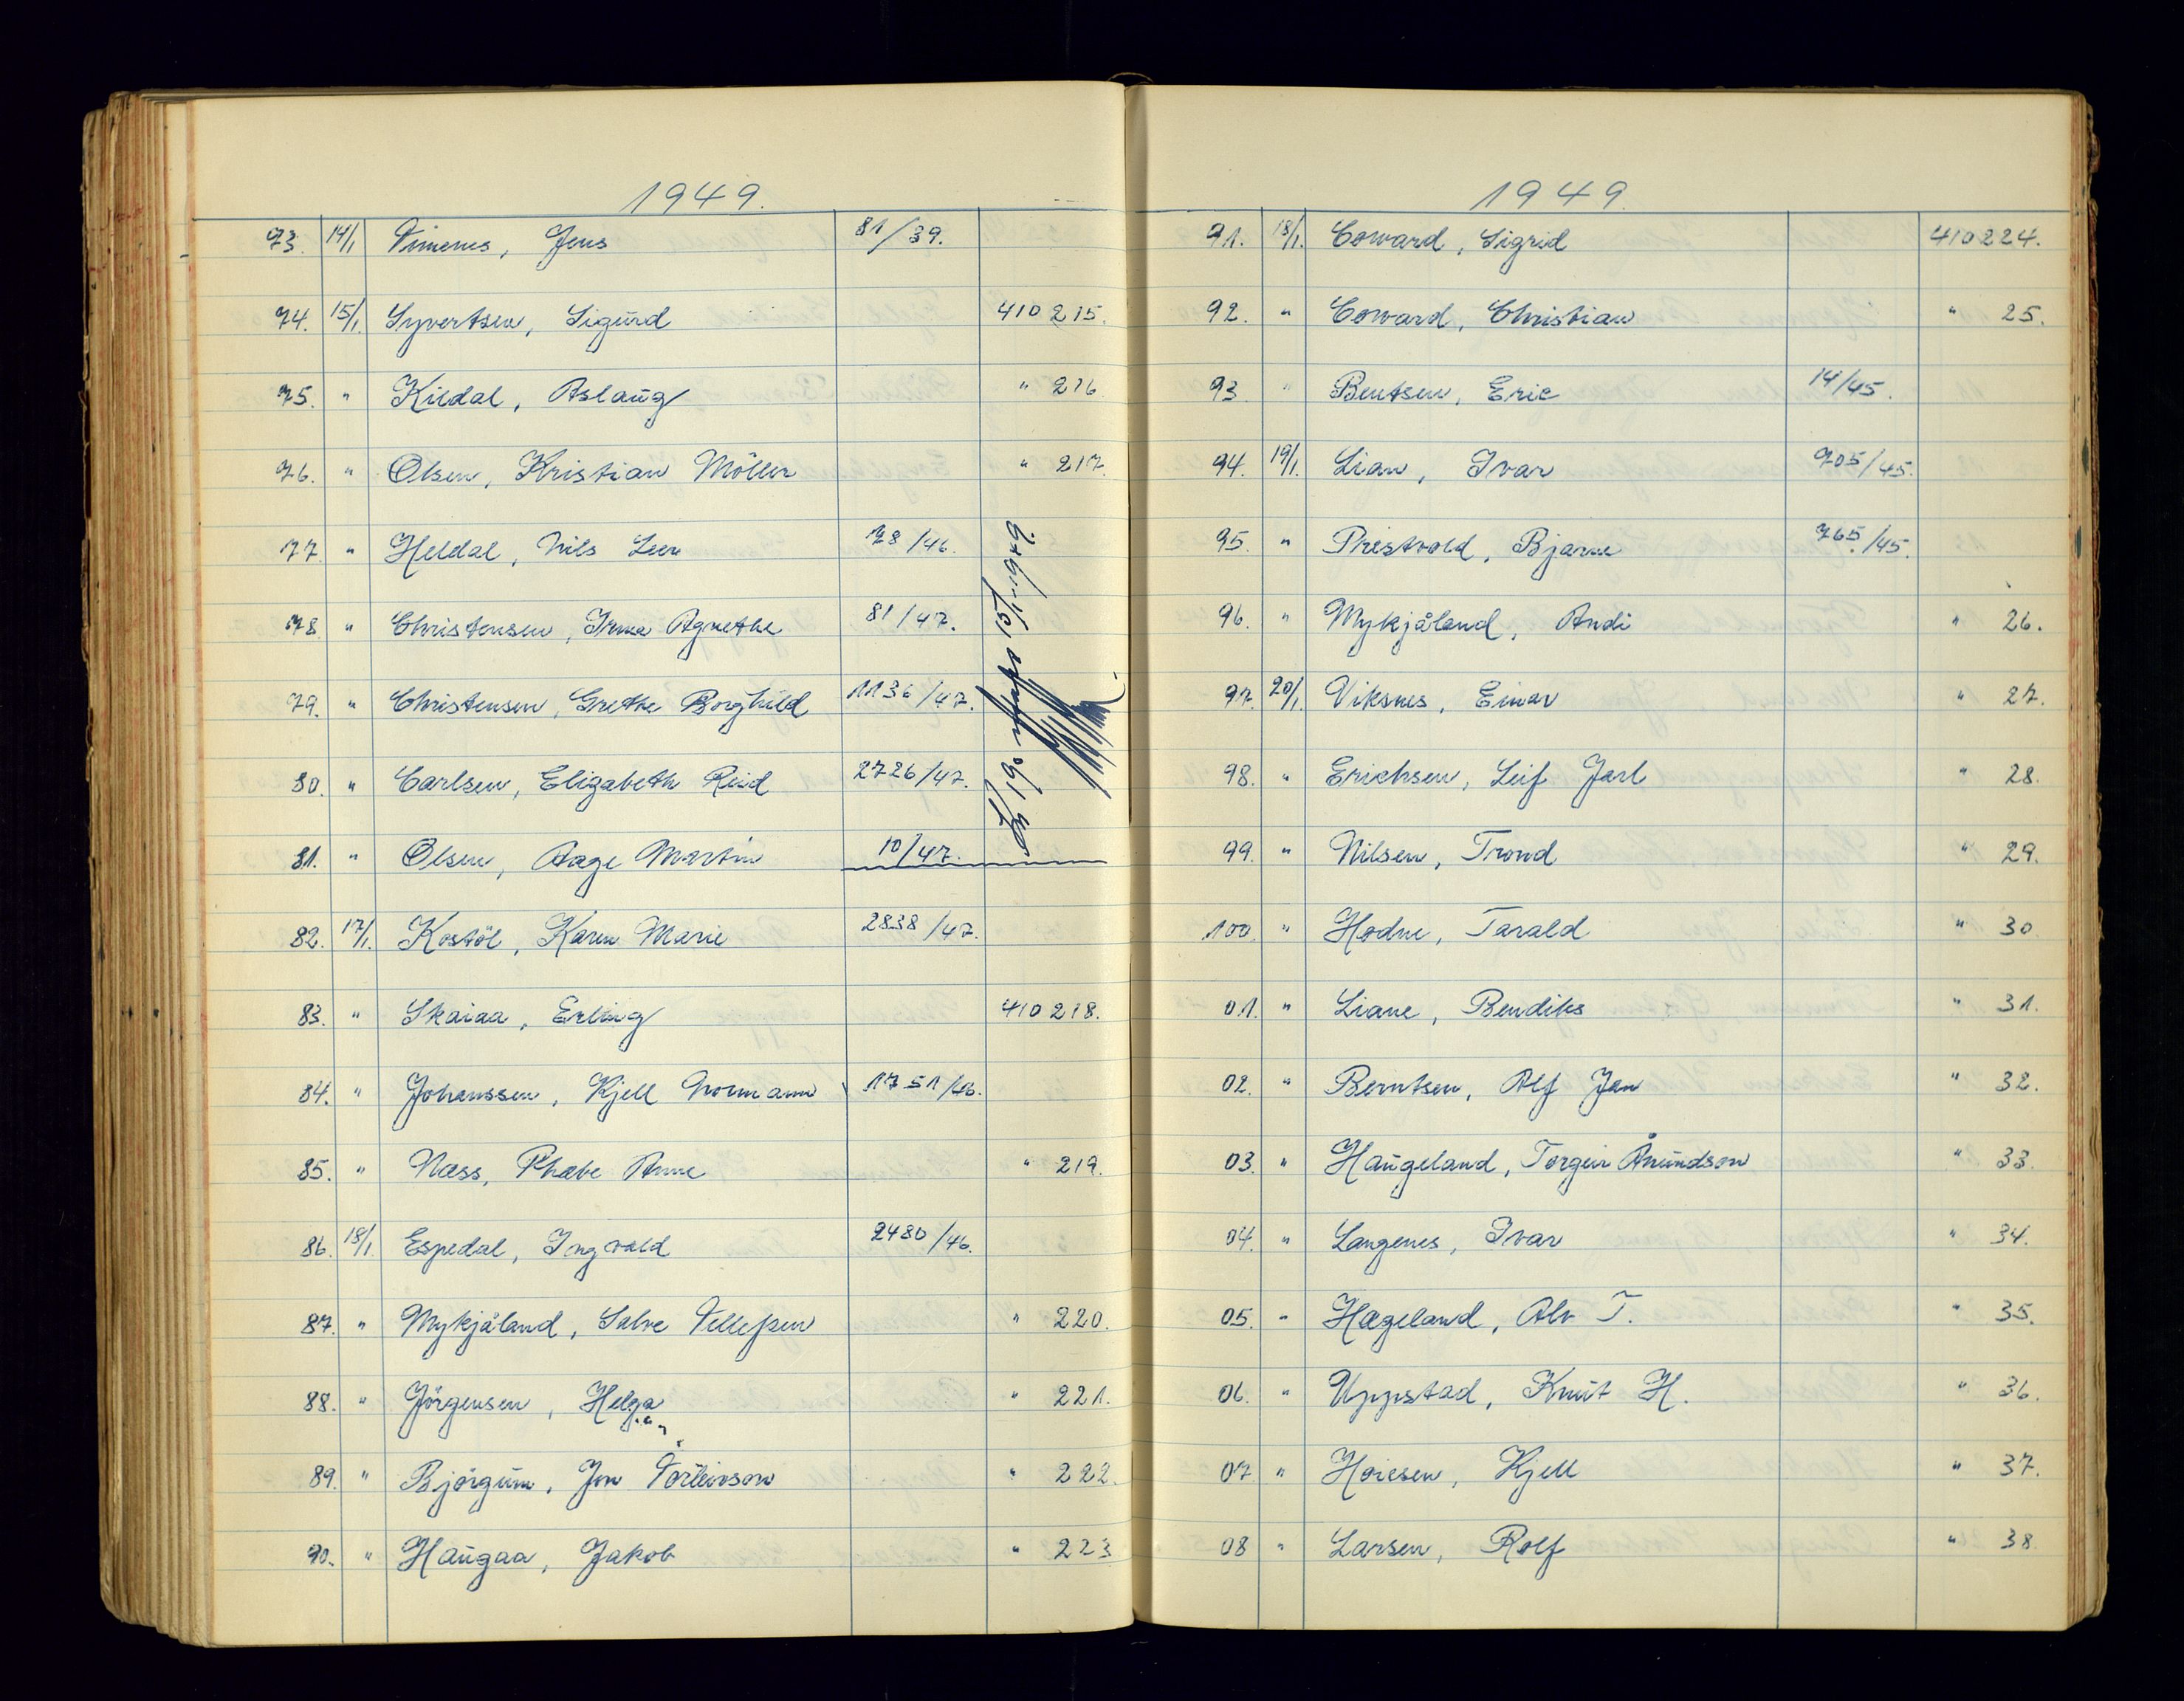 1949.
73. 14/1 Timenes, Jens 81/39.
74. 15/1 Syvertsen, Sigurd 410215.
75. " Kildal, Aslaug " 216
76. " Olsen, Kristian Möller " 217.
77. " Heldal, Nils Leer 78/46.
78. " Christensen, Irma Agnethe 81/47.
79. " Christensen, Grethe Borghild 1136/47.
80. " Carlsen, Elizabeth Reid 2726/47.
81. " Olsen, Aage Martin 10/47.
15/1-1949.
82. 17/1. Kostöl, Karen Marie 2838/47.
83. " Skaiaa, Erling 410218.
84. " Johanssen, Kjell Normann 1751/46.
85. " Næss, Phæbe Anne " 219.
86. 18/1 Espedal, Ingvald 2480/46.
87. " Mykjåland, Salve Tellefsen " 220.
88. " Jörgensen, Helga " 221.
89. " Björgum, Jon Torleivson " 222.
90. " Haugaa, Jakob " 223
1949.
91. 18/1. Coward, Sigrid 410224.
92. " Coward, Christian " 25.
93 " Bentsen, Eric 14/45.
94. 19/1. Lian, Ivar 705/45.
95. " Prestvold, Bjarne 765/45.
96. " Mykjåland, Andi " 26.
97. 20/1. Viksnes, Einar " 27.
98. " Erichsen, Leif Jarl " 28.
99. " Nilsen, Trond " 29.
100. " Hodne, Tarald " 30
01. " Liane, Bendiks " 31.
02. " Berntsen, Alf Jan " 32.
03. " Haugeland, Torgeir Ånundson " 33.
04. " Langenes, Ivar " 34.
05. " Hægeland, Alv T. " 35.
06. " Uppstad, Knut H. " 36.
07 " Hoiesen, Kjell " 37.
08 " Larsen, Rolf " 38.